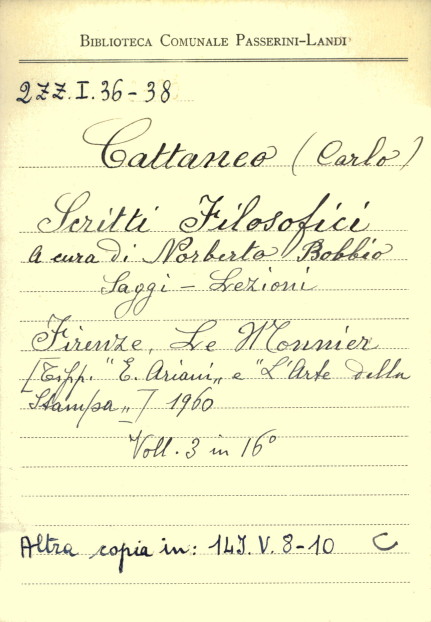 BIBLIOTECA COMUNALE PASSERINI-LANDI
2ZZ.I.36-38
Cattaneo (Carlo)
Scritti Filosofici
A cura di Norberto Bobbio
Saggi - Lezioni
Firenze, Le Monnier
[Tipp. "E. Ariani„ e "L'Arte della
Stampa„] 1960
Voll. 3 in 16°
Altra copia in: 14J.V.8-10 C